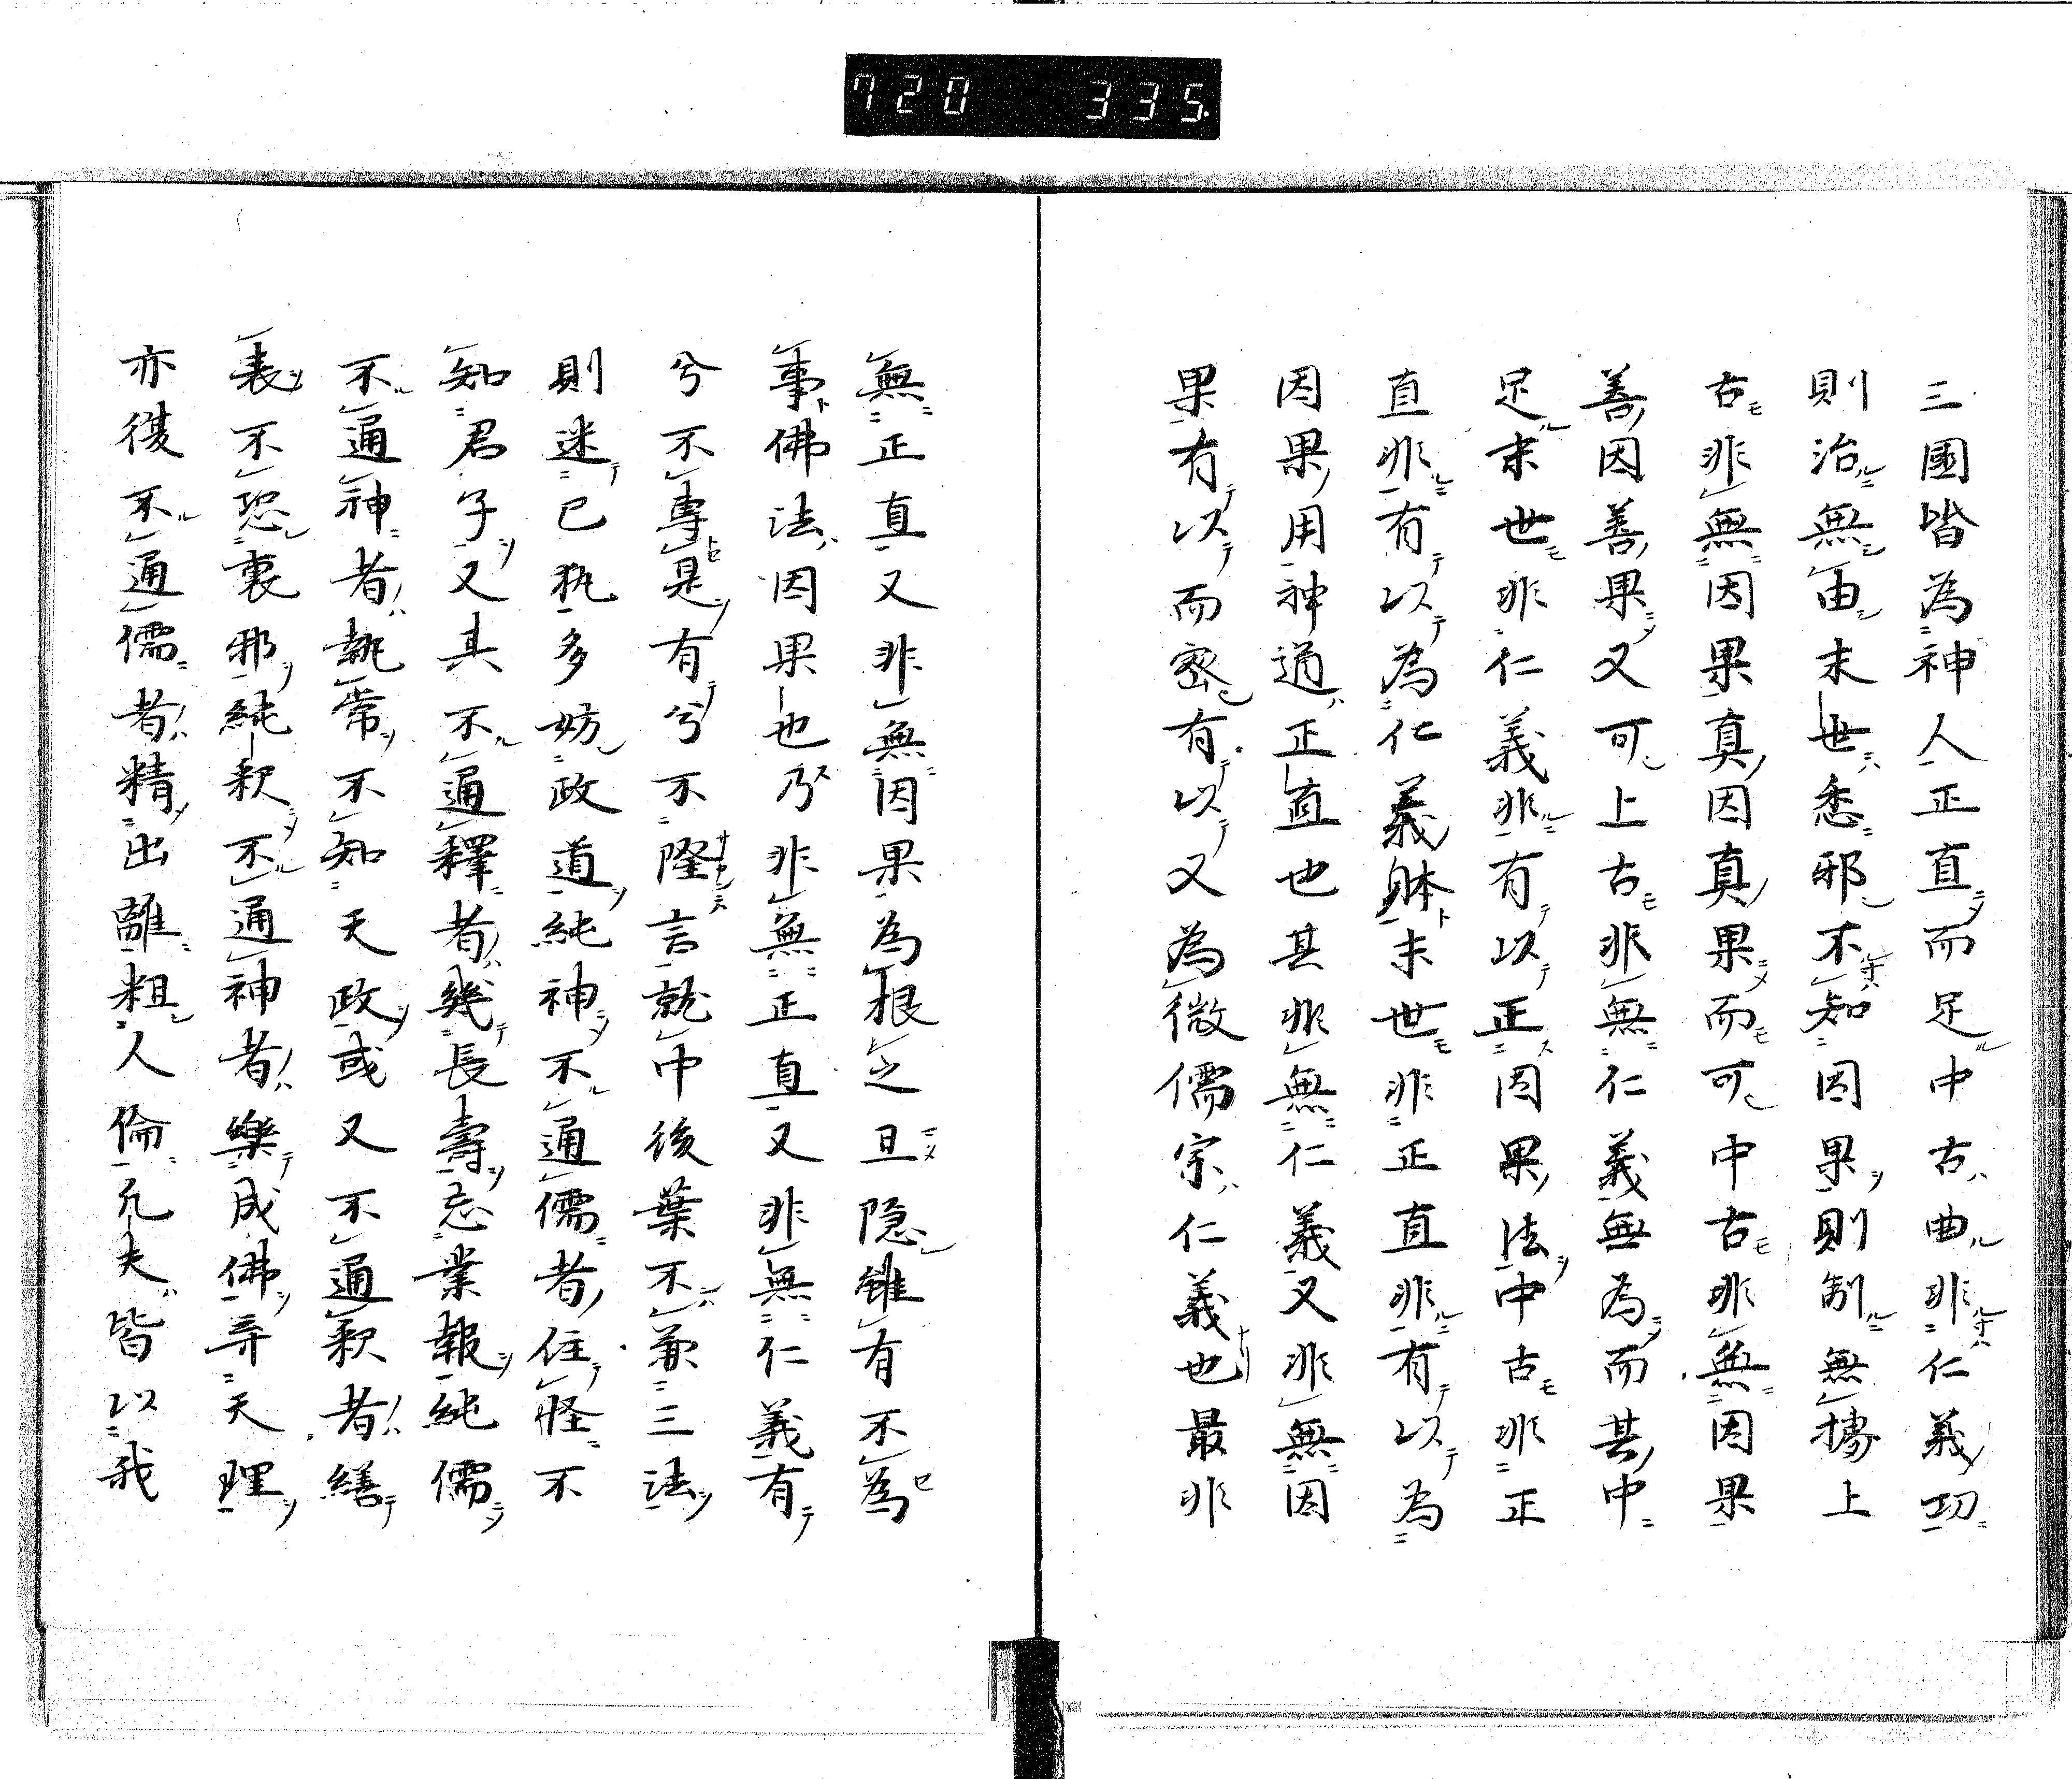 720 335
三國皆為神人正直而足中古曲非仁義功
則治無由末世悉邪不知因果則制無據上
古非無因果真因真果而可中古非無因果
善因善果又可上古非無仁義無為而其中
足末世非仁義非有以正因果法中古非正
直非有以為仁義躰末世非正直非有以為
因果用神道正直也其非無仁義又非無因
果有以而密有以又為微儒宗仁義也最非
無正直又非無因果為根之旦隠雖有不為
事佛法因果也乃非無正直又非無仁義有
兮不專是有兮不隆言就中後葉不兼三法
則迷已執多妨政道純神不通儒者住怪不
知君子又其不通釋者幾長壽忘業報純儒
不通神者執常不知天政或又不通釈者繕
表不恐裏邪純釈不通神者樂成佛弃天理
亦復不通儒者精出離粗人倫凡夫皆以我